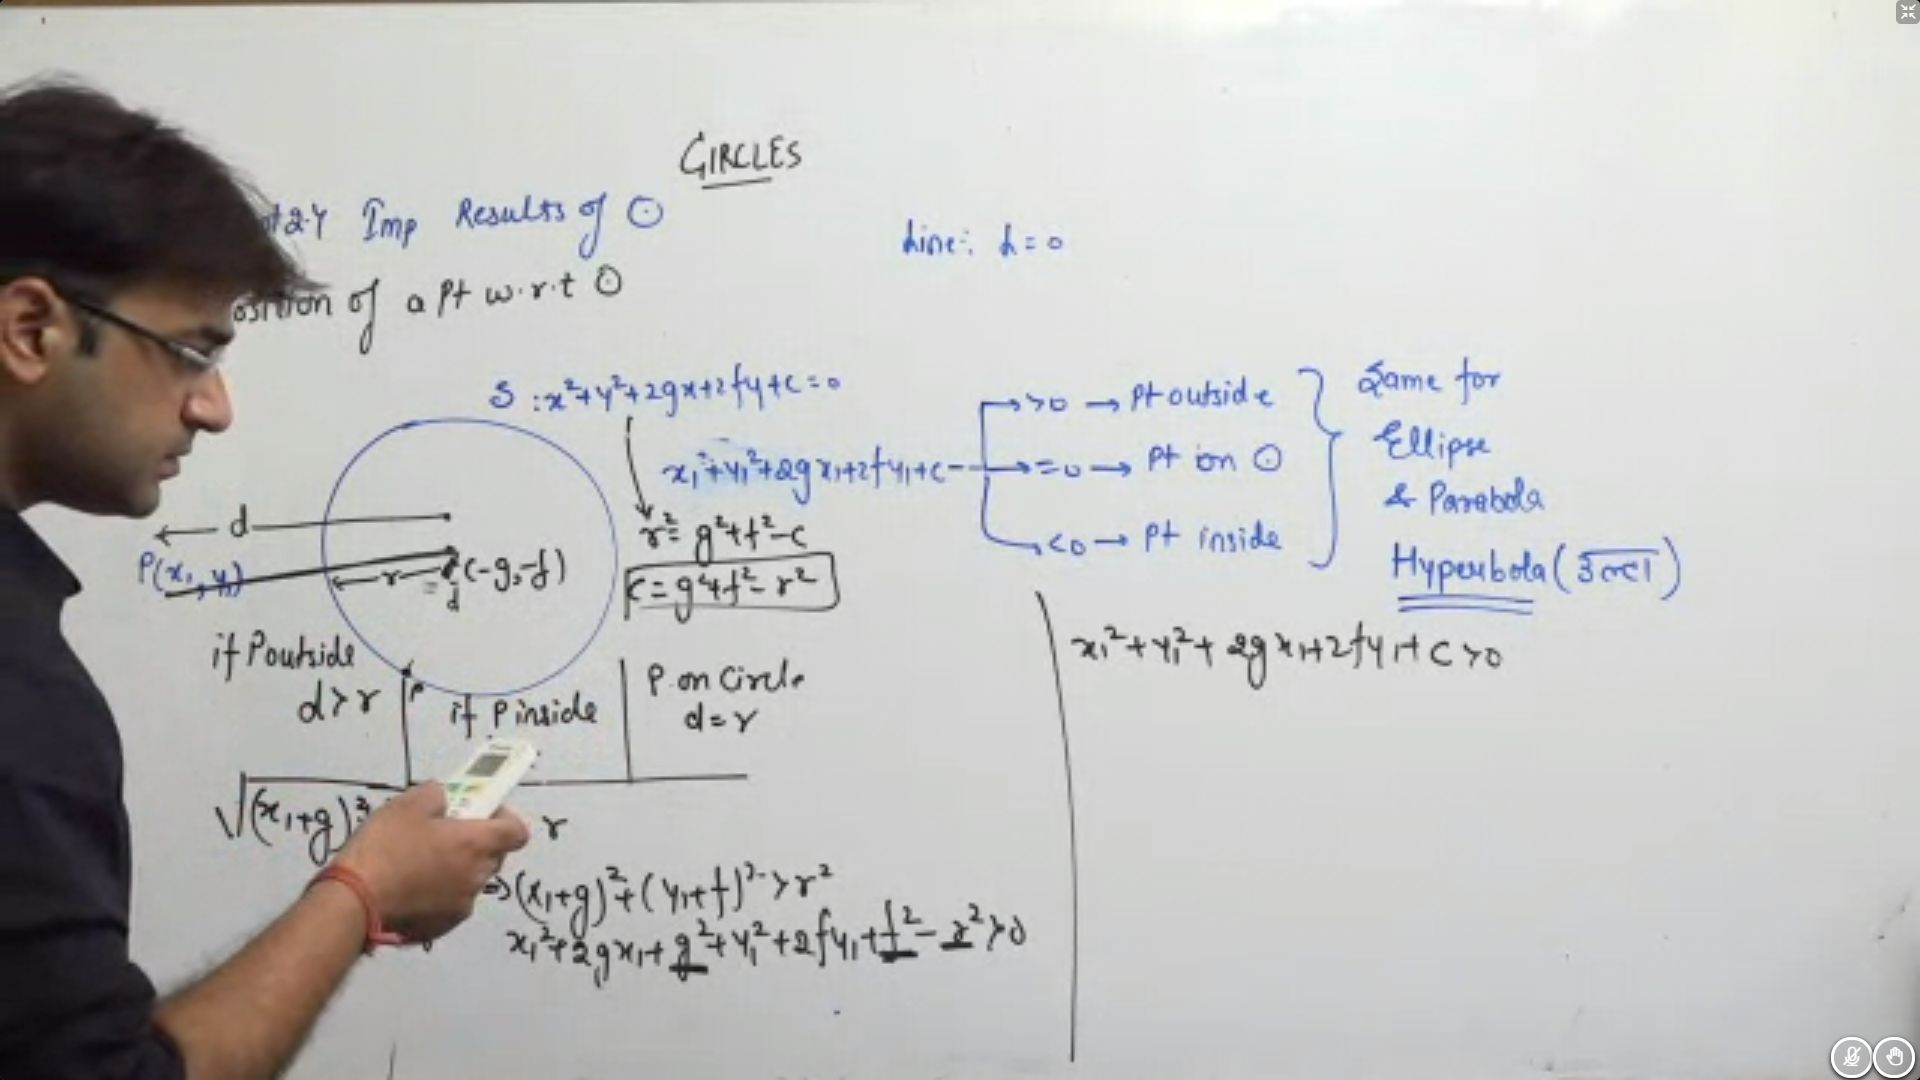 CIRCLES
Imp Results of ⊙
Line: L=0
of a Pt w.r.t ⊙
S : x²+y²+2gx+2fy+c=0
x₁²+y₁²+2gx₁+2fy₁+c
>0 → Pt outside
=0 → Pt on ⊙
<0 → Pt inside
Same for
Ellipse
& Parabola
Hyperbola (उल्टा)
d
P(x₁, y₁)
r
(-g,-f)
r²= g²+f²-c
c= g²+f²-r²
if P outside
d>r
P
if P inside
P. on Circle
d=r
√(x₁+g)²
r
⇒(x₁+g)²+(y₁+f)²>r²
x₁²+2gx₁+g²+y₁²+2fy₁+f²-r²>0
x₁²+y₁²+2gx₁+2fy₁+c>0